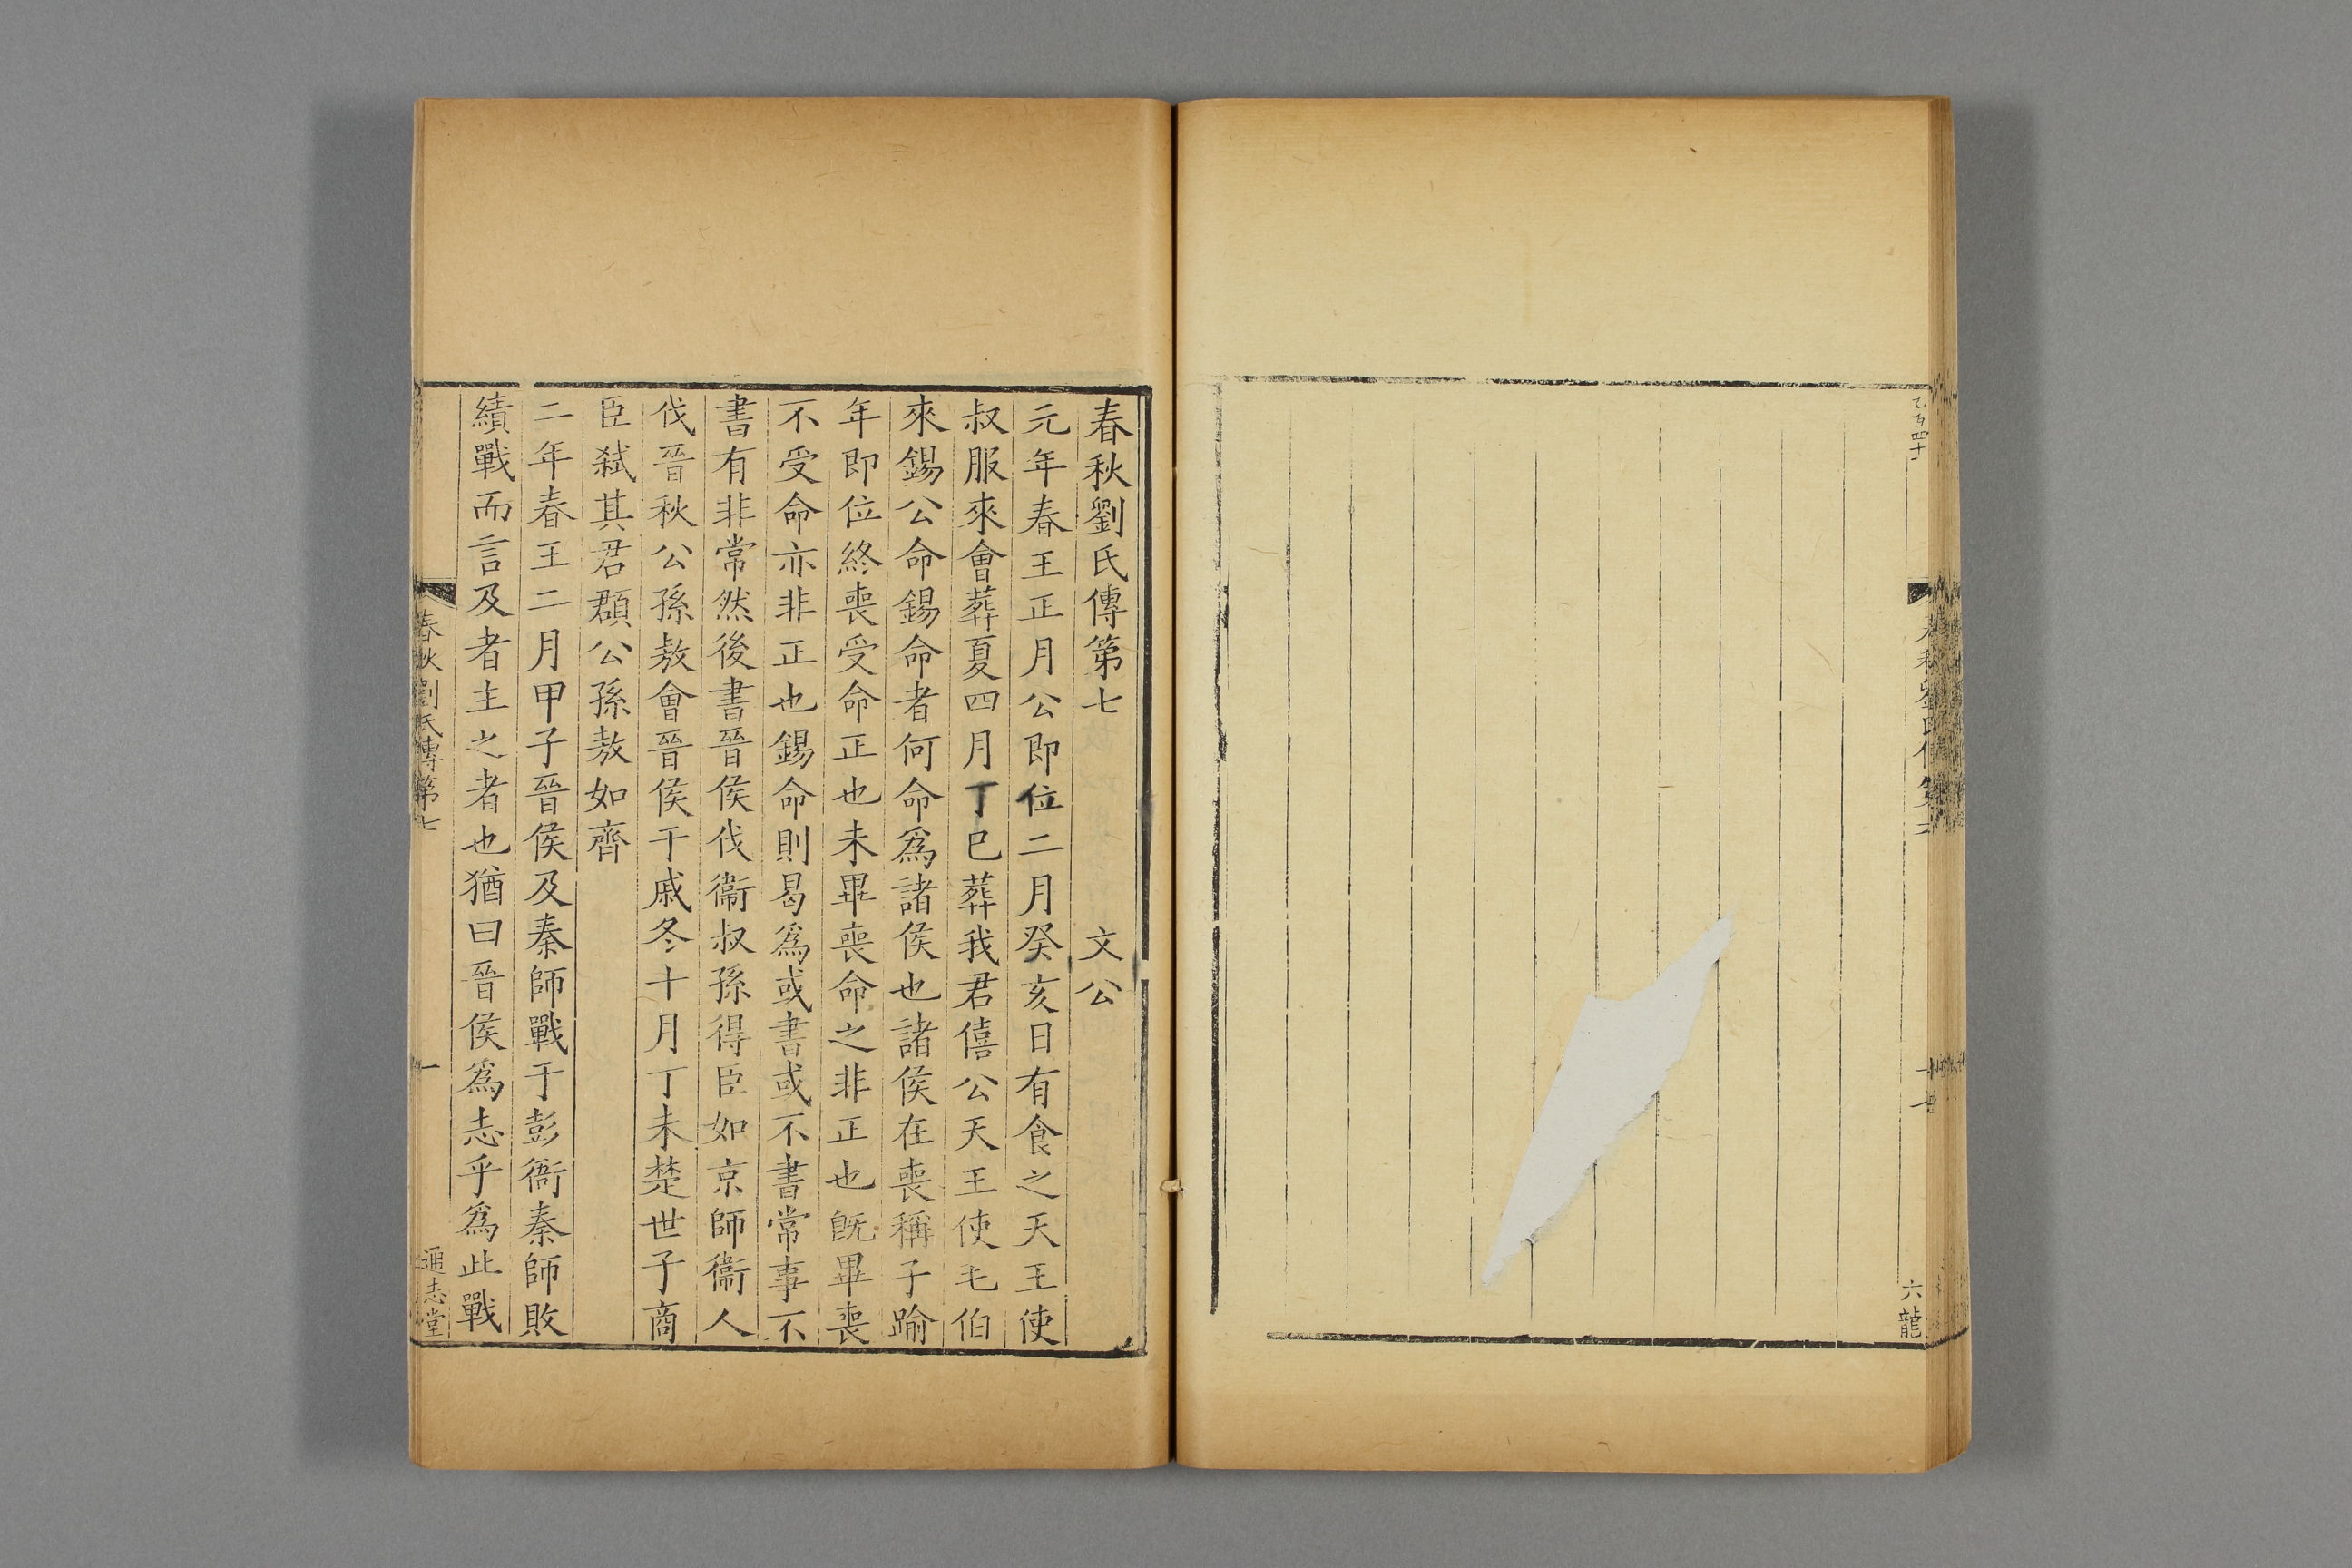 六龍
春秋劉氏傳第七 文公
元年春王正月公即位二月癸亥日有食之天王使
叔服來會葬夏四月丁巳葬我君僖公天王使毛伯
來錫公命錫命者何命爲諸侯也諸侯在喪稱子踰
年即位終喪受命正也未畢喪命之非正也旣畢喪
不受命亦非正也錫命則曷爲或書或不書常事不
書有非常然後書晉侯伐衞叔孫得臣如京師衞人
伐晉秋公孫敖會晉侯于戚冬十月丁未楚世子商
臣弑其君頵公孫敖如齊
二年春王二月甲子晉侯及秦師戰于彭衙秦師敗
績戰而言及者主之者也猶曰晉侯爲志乎爲此戰
春秋劉氏傳第七 一 通志堂